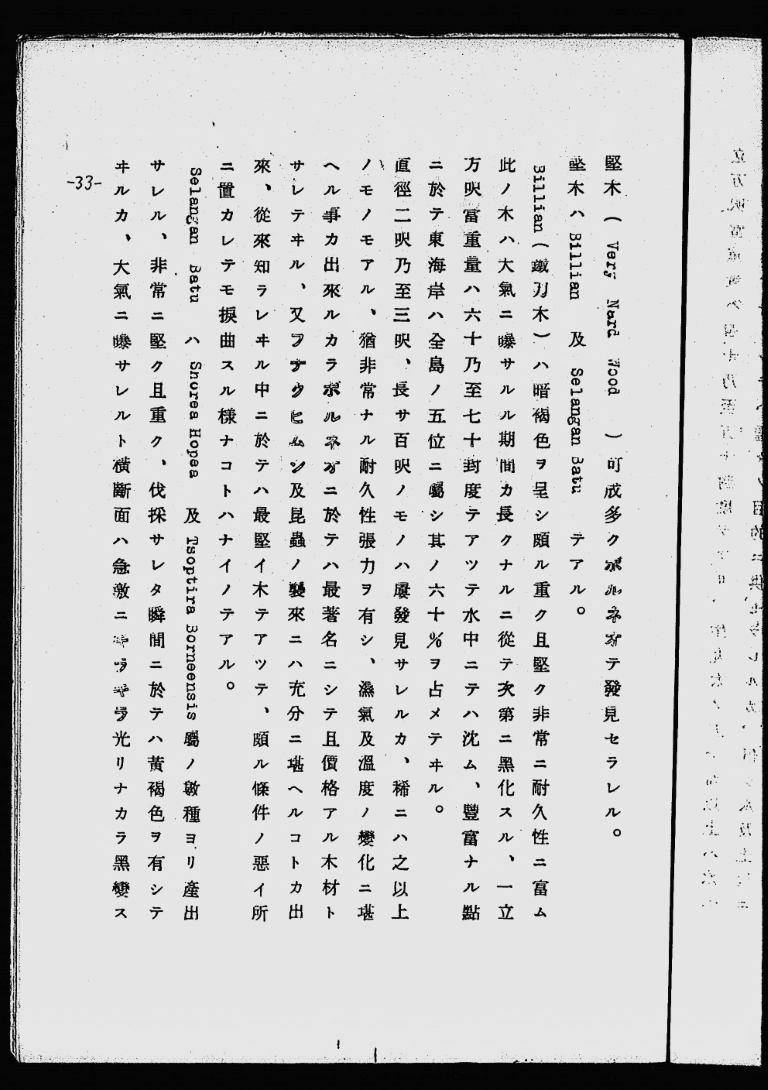 堅木 ( Very Nard Wood ) 可成多クボルネオテ發見セラレル。
堅木ハ Billian 及 Selangan Batu テアル。
Billian (鐵刀木) ハ暗褐色ヲ呈シ頗ル重ク且堅ク非常ニ耐久性ニ富ム
此ノ木ハ大氣ニ曝サルル期間カ長クナルニ從テ次第ニ黑化スル、一立
方呎當重量ハ六十乃至七十封度テアツテ水中ニテハ沈ム、豐富ナル點
ニ於テ東海岸ハ全島ノ五位ニ屬シ其ノ六十%ヲ占メテヰル。
直徑二呎乃至三呎、長サ百呎ノモノハ屢發見サレルカ、稀ニハ之以上
ノモノモアル、猶非常ナル耐久性張力ヲ有シ、濕氣及溫度ノ變化ニ堪
ヘル事カ出來ルカラボルネオニ於テハ最著名ニシテ且價格アル木材ト
サレテヰル、又フナクヒムシ及昆蟲ノ襲來ニハ充分ニ堪ヘルコトカ出
來、從來知ラレヰル中ニ於テハ最堅イ木テアツテ、頗ル條件ノ惡イ所
ニ置カレテモ捩曲スル樣ナコトハナイノテアル。
Selangan Batu ハ Snorea Hopea 及 Tsoptira Borneensis 屬ノ數種ヨリ產出
サレル、非常ニ堅ク且重ク、伐採サレタ瞬間ニ於テハ黃褐色ヲ有シテ
ヰルカ、大氣ニ曝サレルト橫斷面ハ急激ニキラキラ光リナカラ黑變ス
-33-